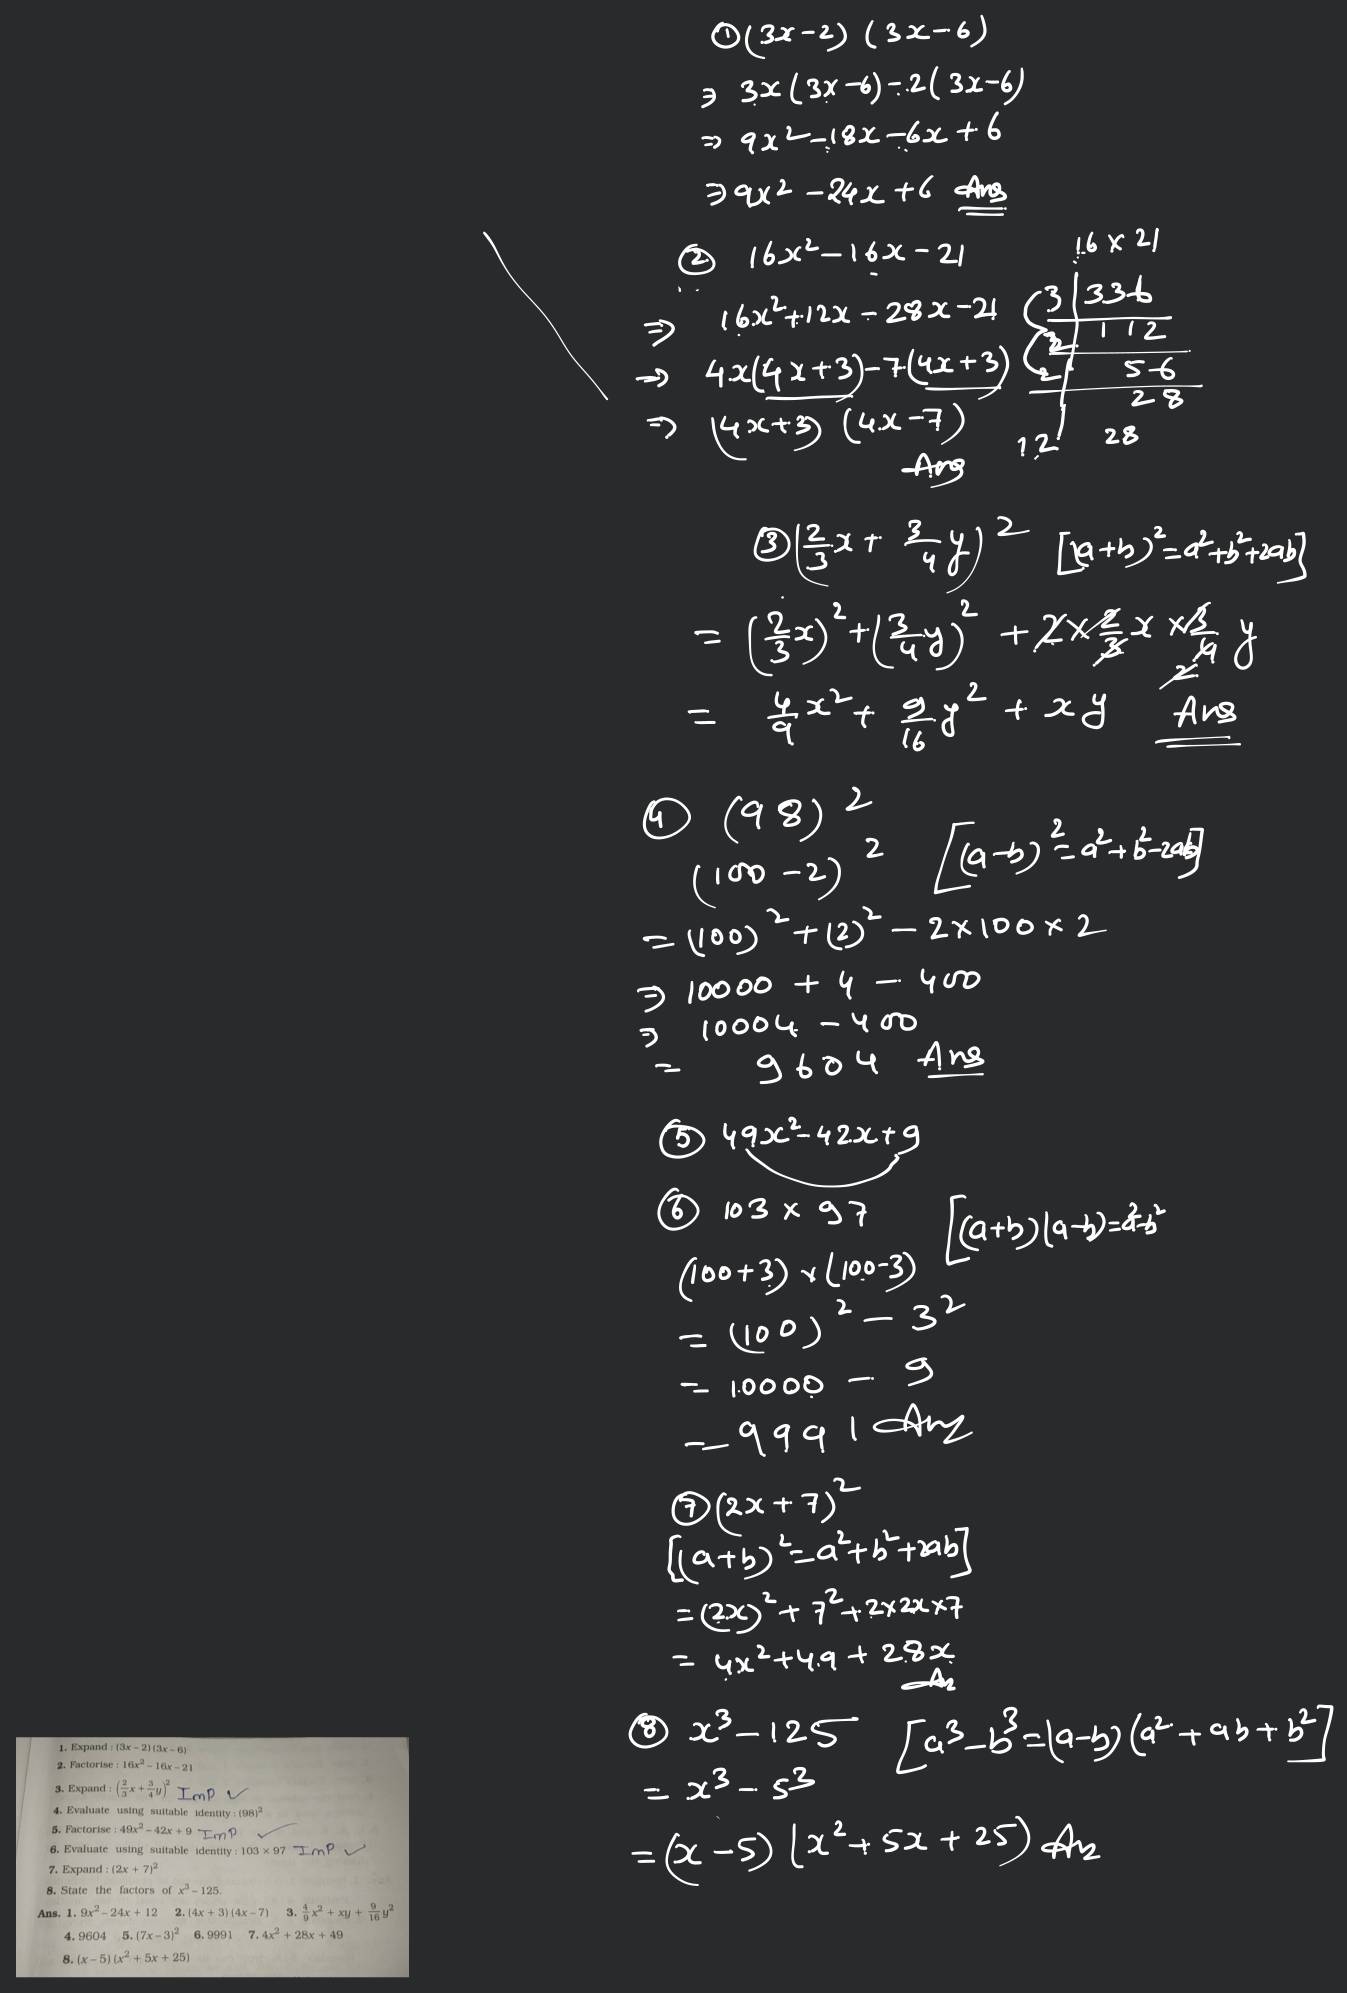 ① (3x-2) (3x-6)
⇒ 3x(3x-6)-2(3x-6)
⇒ 9x²-18x-6x+6
⇒ 9x²-24x+6 Ans
② 16x²-16x-21
⇒ 16x²+12x-28x-21
⇒ 4x(4x+3)-7(4x+3)
⇒ (4x+3) (4x-7)
Ans
16×21
3 | 336
2 | 112
2 | 56
28
12 28
③ (2/3 x + 3/4 y)² [(a+b)²=a²+b²+2ab]
= (2/3 x)²+(3/4 y)² + 2×2/3 x × 3/4 y
2
= 4/9 x² + 9/16 y² + xy Ans
④ (98)²
(100-2)² [(a-b)²=a²+b²-2ab]
= (100)²+(2)²-2×100×2
⇒ 10000 + 4 - 400
⇒ 10004 - 400
= 9604 Ans
⑤ 49x²-42x+9
⑥ 103 × 97 [(a+b)(a-b)=a²-b²
(100+3) × (100-3)
= (100)² - 3²
= 10000 - 9
= 9991 Ans
⑦ (2x+7)²
[(a+b)²=a²+b²+2ab]
= (2x)²+7²+2×2x×7
= 4x²+49+28x
Ans
⑧ x³-125 [a³-b³=(a-b)(a²+ab+b²]
= x³-5³
= (x-5) (x²+5x+25) Ans
1. Expand : (3x – 2) (3x – 6)
2. Factorise : 16x² – 16x – 21
3. Expand : (2/3 x + 3/4 y)² ImP ✓
4. Evaluate using suitable identity : (98)²
5. Factorise : 49x² – 42x + 9 ImP ✓
6. Evaluate using suitable identity : 103 × 97 ImP ✓
7. Expand : (2x + 7)²
8. State the factors of x³ – 125.
Ans. 1. 9x² – 24x + 12 2. (4x + 3) (4x – 7) 3. 4/9 x² + xy + 9/16 y²
4. 9604 5. (7x – 3)² 6. 9991 7. 4x² + 28x + 49
8. (x – 5) (x² + 5x + 25)